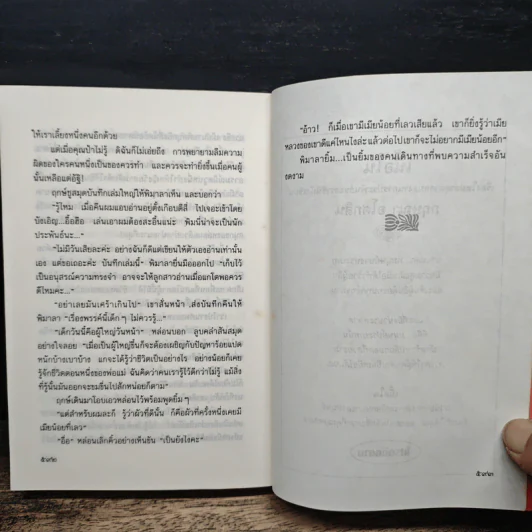 ให้เราเลี้ยงหนึ่งคนอีกด้วย
แต่เมื่อคุณป้าไม่รู้ ดิฉันก็ไม่เอ่ยถึง การพยายามลืมความ
ผิดของใครคนหนึ่งเป็นของควรทำ และควรจะทำยิ่งขึ้นเมื่อคนผู้
นั้นเหลือแต่อัฐิ!
ฤกษ์ชูสมุดบันทึกเล่มใหญ่ให้พิมาลาเห็น และบอกว่า
"รู้ไหม เมื่อคืนผมแอบอ่านอยู่ตั้งเกือบตีสี่ ไปเจอะเข้าโดย
บังเอิญ...อื้อฮือ เล่นเอาผมต้องสะอื้นแน่ะ พิมนี่น่าจะเป็นนัก
ประพันธ์นะ..."
"ไม่มีวันเสียละค่ะ อย่างฉันก็ดีแต่เขียนให้ตัวเองอ่านเท่านั้น
เอง แต่ขอเถอะค่ะ บันทึกเล่มนี้" พิมาลายื่นมือออกไป "เก็บไว้
เป็นอนุสรณ์ความทรงจำ อาจจะให้ลูกสาวอ่านเมื่อแกโตพอควร
ดีไหมคะ..."
"อย่าเลยมันเศร้าเกินไป" เขาสั่นหน้า ส่งบันทึกคืนให้
พิมาลา "เรื่องพรรค์นี้เด็กๆ ไม่ควรรู้..."
"เด็กวันนี้คือผู้ใหญ่วันหน้า" หล่อนบอก ลูบคลำสันสมุด
อย่างใจลอย "เมื่อเป็นผู้ใหญ่ขึ้นก็จะต้องเผชิญกับปัญหาร้อยแปด
หนักบ้างเบาบ้าง แกจะได้รู้ว่าชีวิตเป็นอย่างไร อย่างน้อยก็เคย
รู้จักชีวิตตอนหนึ่งของพ่อแม่ ฉันคิดว่าคนเรารู้ไว้ดีกว่าไม่รู้ แม้สิ่ง
ที่รู้นั้นมันออกจะขมขื่นไปสักหน่อยก็ตาม"
ฤกษ์เดินมาโอบเอวหล่อนไว้พร้อมพูดยิ้มๆ
"แต่สำหรับผมละก็ รู้ว่าผัวที่ดีนั้น ก็คือผัวที่ครั้งหนึ่งเคยมี
เมียน้อยที่เลว"
"อือ" หล่อนเลิกคิ้วอย่างเห็นขัน "เป็นยังไงคะ"
๕๙๒
"อ้าว! ก็เมื่อเขามีเมียน้อยที่เลวเสียแล้ว เขาก็ยิ่งรู้ว่าเมีย
หลวงของเขาดีแค่ไหนไงล่ะแล้วต่อไปเขาก็จะไม่อยากมีเมียน้อยอีก"
พิมาลายิ้ม...เป็นยิ้มของคนเดินทางที่พบความสำเร็จอัน
งดงาม
๕๙๓